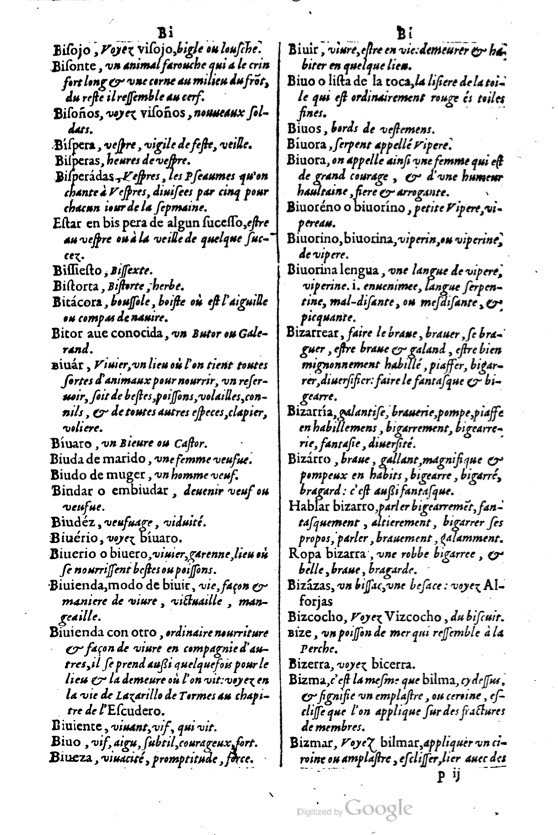 Bi
Bisojo, Voyez visojo, bigle ou lousche.
Bisonte, vn animal farouche qui a le crin
fort long & vne corne au milieu du frōt,
du reste il ressemble au cerf.
Bisoños, voyez visoños, nouueaux sol-
dats.
Bispera, vespre, vigile de feste, veille.
Bisperas, heures de vespre.
Bisperádas, Vespres, les Pseaumes qu'on
chante à Vespres, diuisees par cinq pour
chacun iour de la sepmaine.
Estar en bispera de algun sucesso, estre
au vespre ou à la veille de quelque suc-
cez.
Bissiesto, Bissexte.
Bistorta, Bistorte, herbe.
Bitácora, boussole, boiste où est l'aiguille
ou compas de nauire.
Bitor aue conocida, vn Butor ou Gale-
rand.
Biuár, Viuier, vn lieu où l'on tient toutes
sortes d'animaux pour nourrir, vn reser-
uoir, soit de bestes, poissons, volailles, con-
nils, & de toutes autres especes, clapier,
voliere.
Bíuaro, vn Bieure ou Castor.
Biuda de marido, vne femme veufue.
Biudo de muger, vn homme veuf.
Bindar o embiudar, deuenir veuf ou
veufue.
Biudéz, veufuage, viduité.
Biuério, voyez bíuaro.
Biuerio o biuero, viuier, garenne, lieu où
se nourrissent bestes ou poissons.
Biuienda, modo de biuir, vie, façon &
maniere de viure, victuaille, man-
geaille.
Biuienda con otro, ordinaire nourriture
& façon de viure en compagnie d'au-
tres, il se prend aussi quelquefois pour le
lieu & la demeure où l'on vit: voyez en
la vie de Lazarillo de Tormes au chapi-
tre de l'Escudero.
Biuiente, viuant, vif, qui vit.
Biuo, vif, aigu, subtil, courageux, fort.
Biueza, viuacité, promptitude, force.
Bi
Biuir, viure, estre en vie: demeurer & ha-
biter en quelque lieu.
Biuo o lista de la toca, la lisiere de la toi-
le qui est ordinairement rouge és toiles
fines.
Biuos, bords de vestemens.
Bíuora, serpent appellé Vipere.
Biuora, on appelle ainsi vne femme qui est
de grand courage, & d'vne humeur
haultaine, fiere & arrogante.
Biuoréno o biuoríno, petite Vipere, vi-
pereau.
Biuorino, biuorina, viperin, ou viperine,
de vipere.
Biuorina lengua, vne langue de vipere,
viperine. i. enuenimee, langue serpen-
tine, mal-disante, ou mesdisante, &
picquante.
Bizarrear, faire le braue, brauer, se bra-
guer, estre braue & galand, estre bien
mignonnement habillé, piaffer, bigar-
rer, diuersifier: faire le fantasque & bi-
gearre.
Bizarria, galantise, brauerie, pompe, piaffe
en habillemens, bigarrement, bigearre-
rie, fantasie, diuersité.
Bizárro, braue, gallant, magnifique &
pompeux en habits, bigearre, bigarré,
bragard: c'est aussi fantasque.
Hablar bizarro, parler bigearremēt, fan-
tasquement, altierement, bigarrer ses
propos, parler, brauement, galamment.
Ropa bizarra, vne robbe bigarree, &
belle, braue, bragarde.
Bizázas, vn bissac, vne besace: voyez Al-
forjas
Bizcocho, Voyez Vizcocho, du biscuit.
Bize, vn poisson de mer qui ressemble à la
Perche.
Bizerra, voyez bicerra.
Bizma, c'est la mesme que bilma, cy dessus,
& signifie vn emplastre, ou ceroine, es-
clisse que l'on applique sur des fractures
de membres.
Bizmar, Voyez bilmar, appliquer vn ci-
roine ou amplastre, esclisser, lier auec des
P ij
Digitized by Google